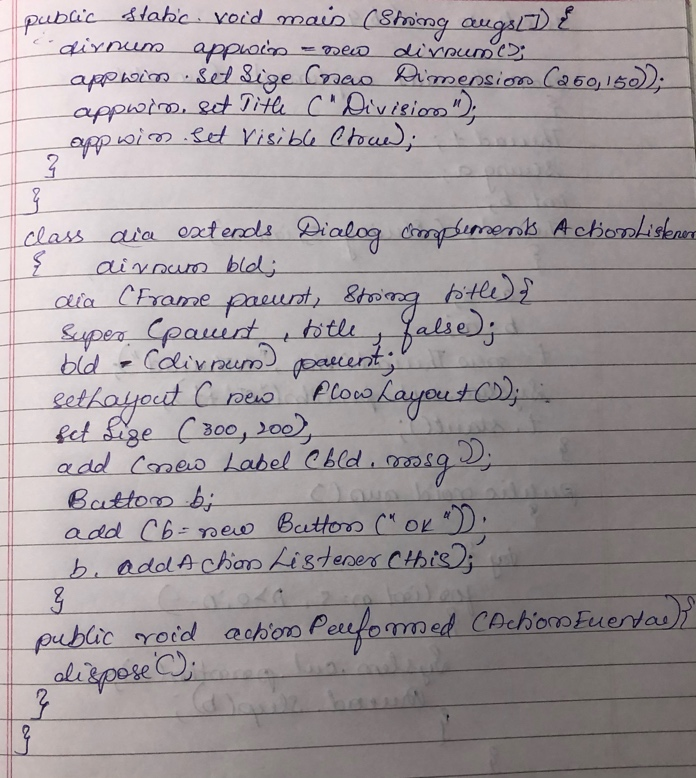 public static void main (String args[]) {
divnum appwin = new divnum();
appwin.setSize (new Dimension (250,150));
appwin.setTitle ("Division");
appwin.setVisible (true);
}
}
class dia extends Dialog implements ActionListener
{ divnum bld;
dia (Frame parent, String title) {
super (parent, title, false);
bld = (divnum) parent;
setLayout (new FlowLayout());
setSize (300, 200);
add (new Label (bld.msg));
Button b;
add (b = new Button ("OK"));
b. addActionListener (this);
}
public void actionPerformed (ActionEvent ae) {
dispose();
}
}